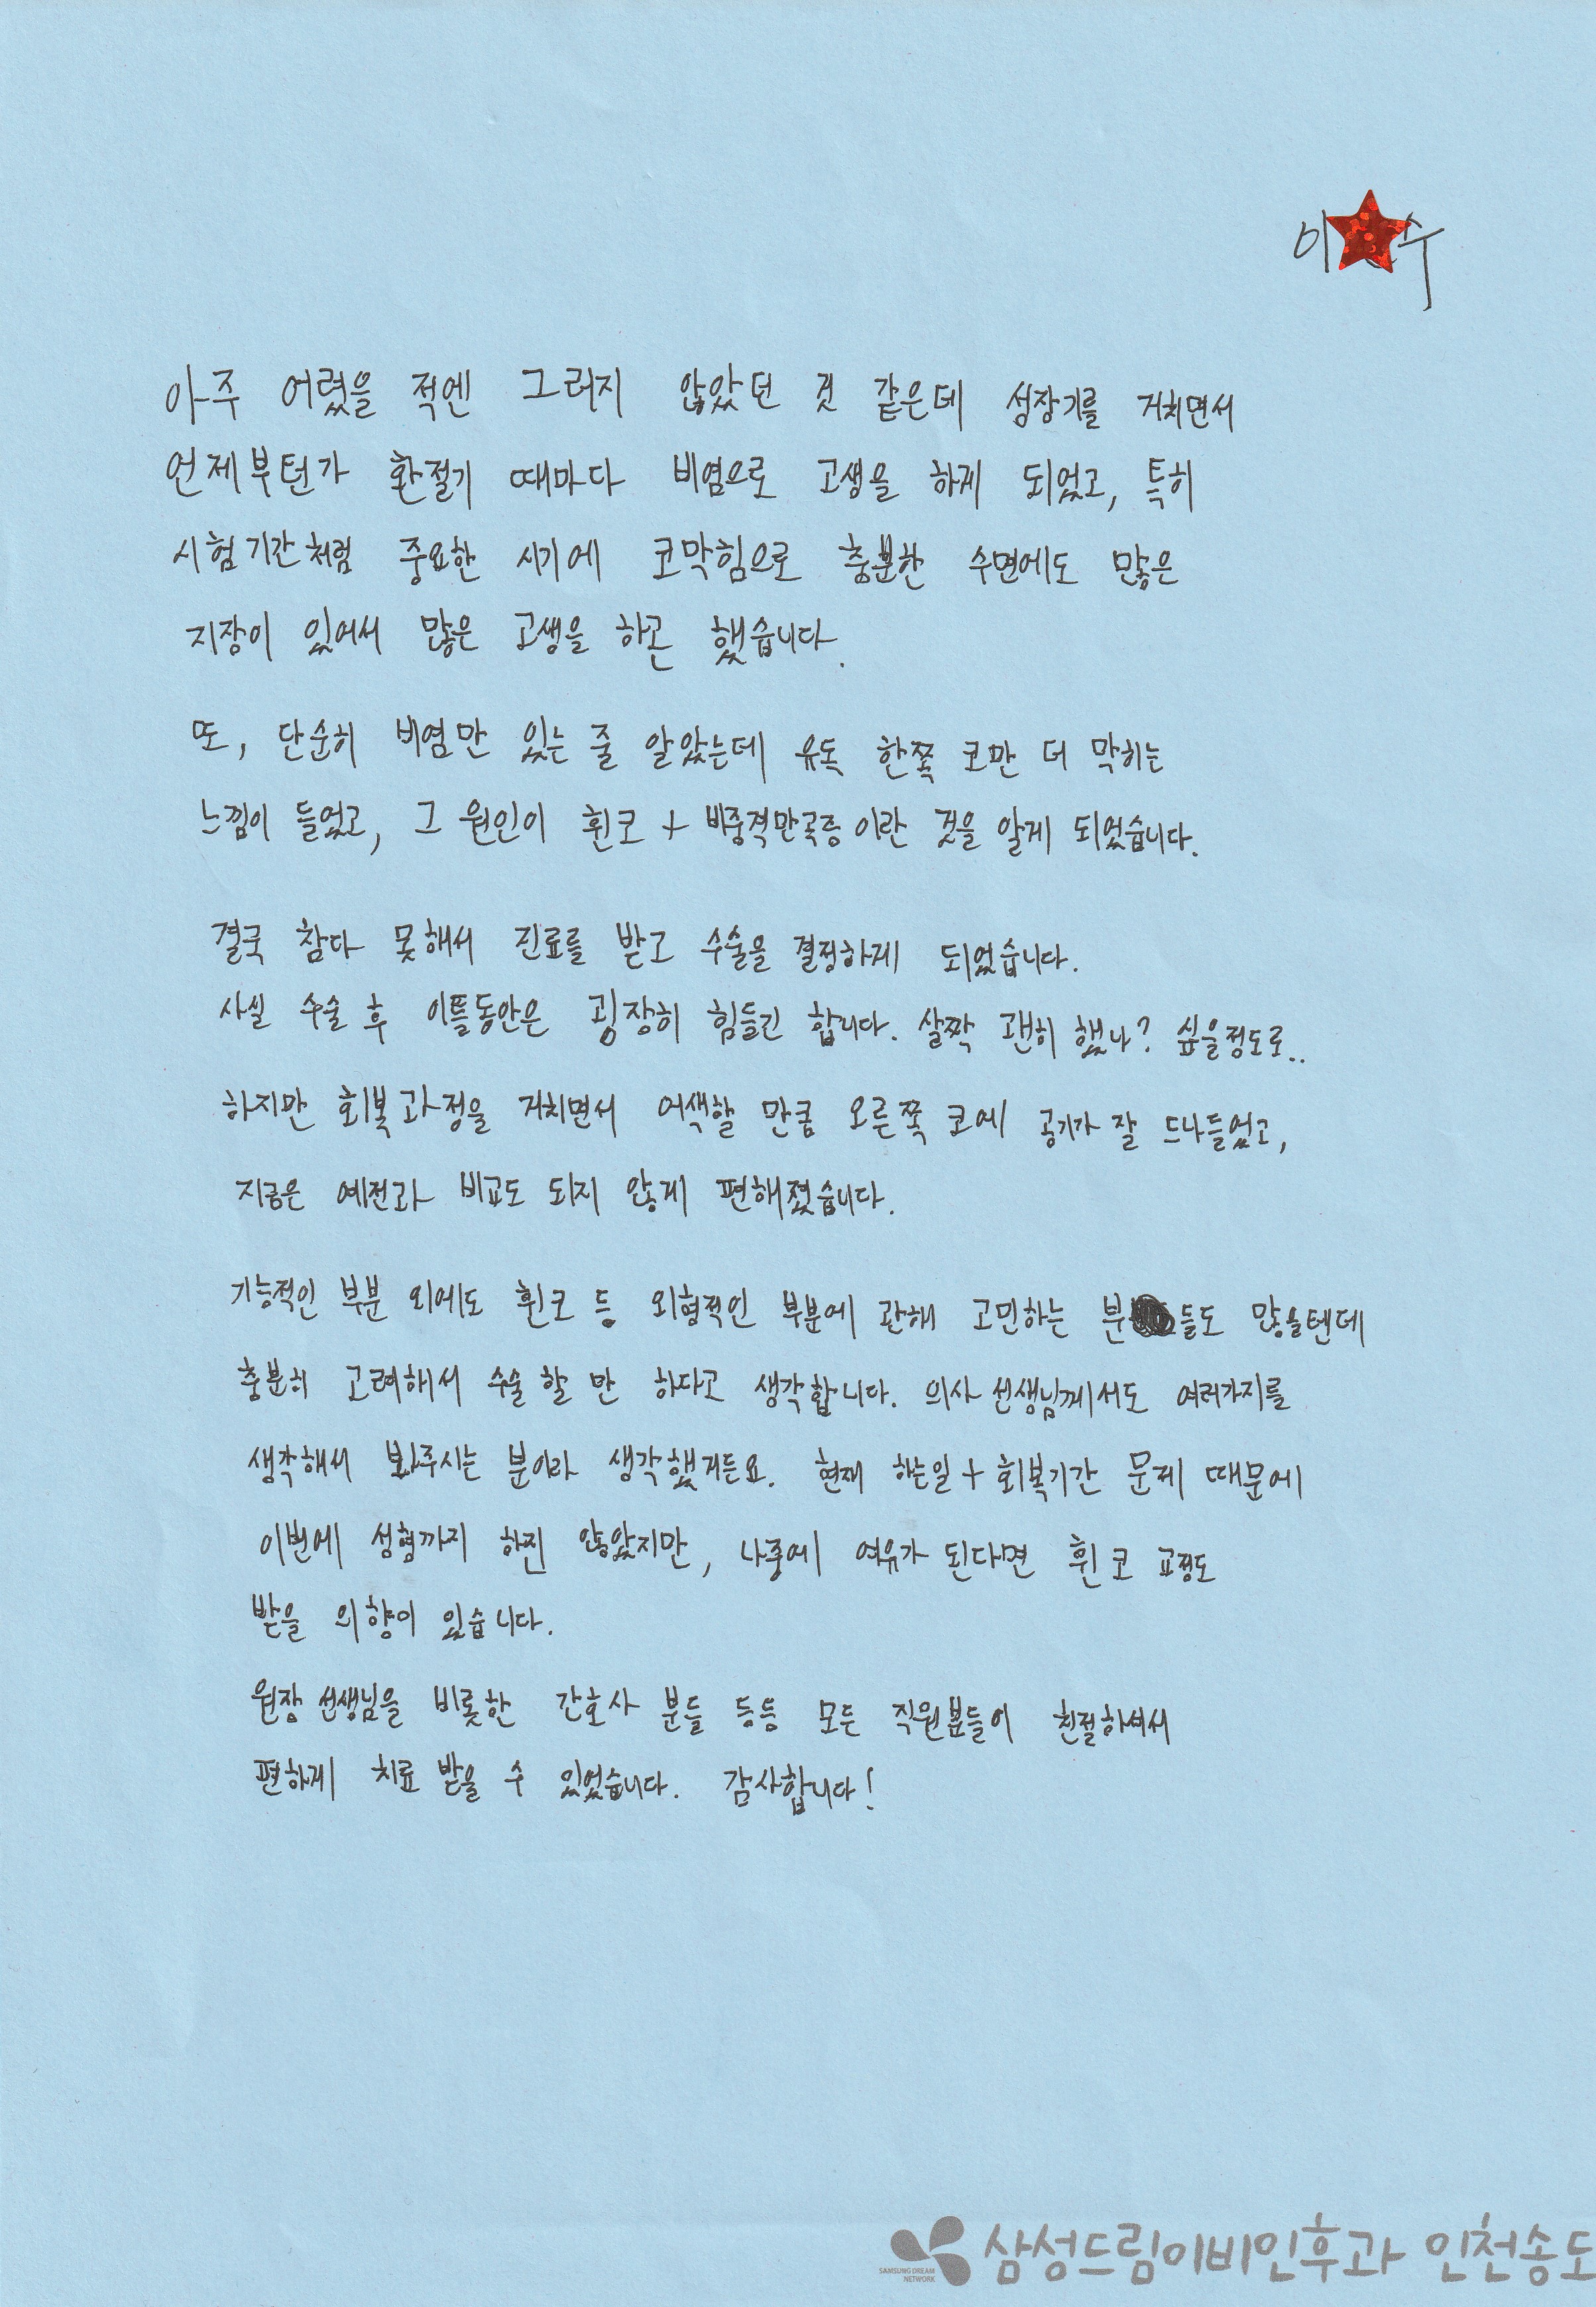 이 수
아주 어렸을 적엔 그러지 않았던 것 같은데 성장기를 거치면서
언제부턴가 환절기 때마다 비염으로 고생을 하게 되었고, 특히
시험기간처럼 중요한 시기에 코막힘으로 충분한 수면에도 많은
지장이 있어서 많은 고생을 하곤 했습니다.
또, 단순히 비염만 있는 줄 알았는데 유독 한쪽 코만 더 막히는
느낌이 들었고, 그 원인이 휜코 + 비중격만곡증이란 것을 알게 되었습니다.
결국 참다 못해서 진료를 받고 수술을 결정하게 되었습니다.
사실 수술 후 이틀동안은 굉장히 힘들긴 합니다. 살짝 괜히 했나? 싶을정도로..
하지만 회복과정을 거치면서 어색할 만큼 오른쪽 코에 공기가 잘 드나들었고,
지금은 예전과 비교도 되지 않게 편해졌습니다.
기능적인 부분 외에도 휜코 등 외형적인 부분에 관해 고민하는 분들도 많을텐데
충분히 고려해서 수술 할 만 하다고 생각합니다. 의사 선생님께서도 여러가지를
생각해서 봐주시는 분이라 생각했거든요. 현재 하는일 + 회복기간 문제 때문에
이번에 성형까지 하진 않았지만, 나중에 여유가 된다면 휜코 교정도
받을 의향이 있습니다.
원장 선생님을 비롯한 간호사 분들 등등 모든 직원분들이 친절하셔서
편하게 치료 받을 수 있었습니다. 감사합니다!
SAMSUNG DREAM NETWORK 삼성드림이비인후과 인천송도